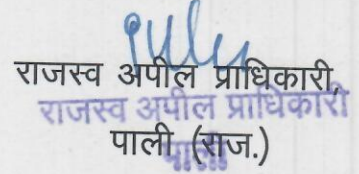 राजस्व अपील प्राधिकारी,
राजस्व अपील प्राधिकारी
पाली (राज.)
पाली